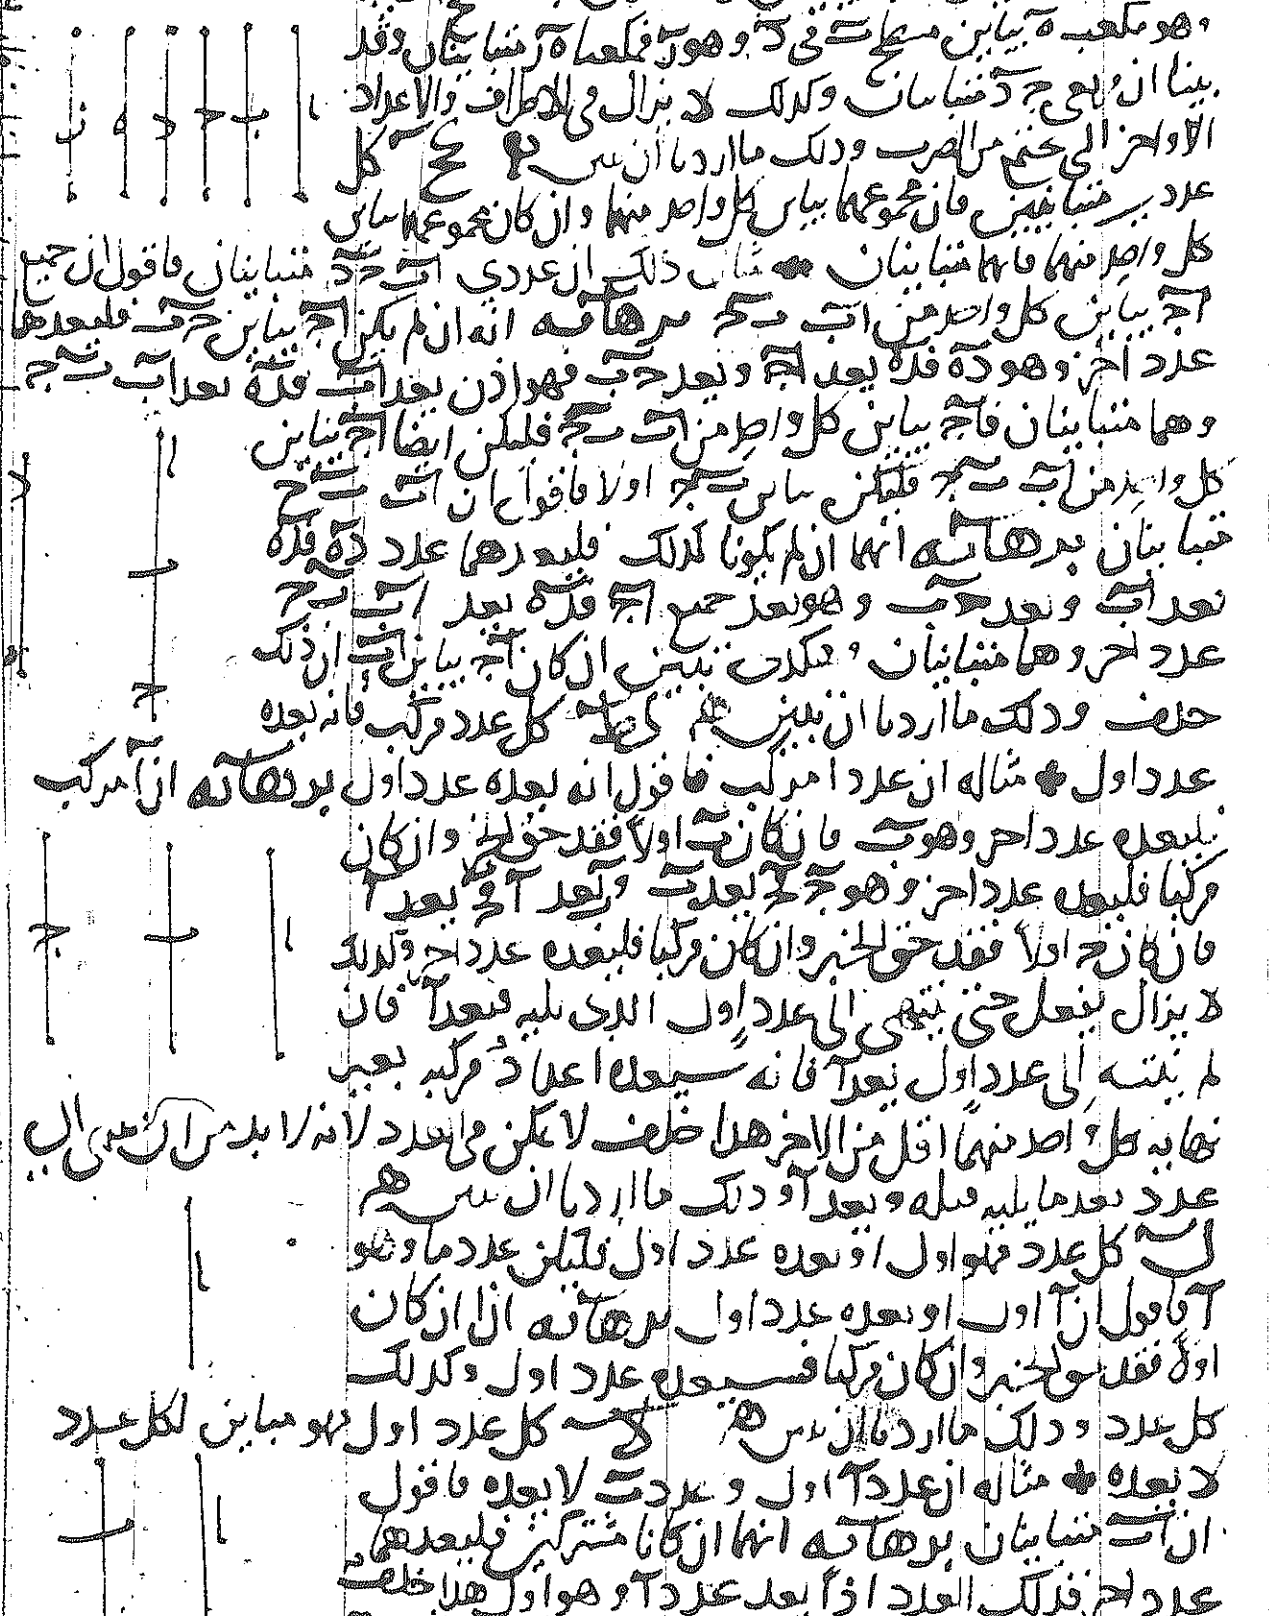 وهو مكعب ه يباين مسطح ب في د وهو ز فمكعبا ه ز متباينان وقد
بينا ان ج د متباينان وكذلك لا يزال في الاطراف والاعداد
الأواخر التي من الضرب وذلك ما اردنا ان نبين كح كل
عددين متباينين فان مجموعهما يباين كل واحد منهما وان كان مجموعهما يباين
كل واحد منهما فانهما متباينان مثال ذلك ان عددي اب بج متباينان فاقول ان جميع
اج يباين كل واحد من اب بج برهانه انه ان لم يكن اج يباين جب فليعدهما
عدد اخر وهو ده فده يعد اج ويعد جب فهو اذن يعد اب فده يعد اب بج
وهما متباينان فاج يباين كل واحد من اب بج فليكن ايضا اج يباين
كل واحد من اب بج فليكن يباين بج اولا فاقول ان اب بج
متباينان برهانه انهما ان لم يكونا كذلك فليعدهما عدد ده فده
يعد اب ويعد جب وهو يعد جميع اج فده يعد اب بج
عدد اخر وهما متباينان وكذلك نبين ان كان اج يباين اب ان ذلك
خلف وذلك ما اردنا ان نبين ل كل عدد مركب فانه يعده
عدد اول مثاله ان عدد ا مركب فاقول انه يعده عدد اول برهانه ان ا مركب
فليعده عدد اخر وهو ب فان كان ب اولا فقد حق الخبر وان كان
مركبا فليعده عدد اخر وهو ج فج يعد ب وب يعد ا فج يعد ا
فان كان ج اولا فقد حق الخبر وان كان مركبا فليعده عدد اخر وكذلك
لا يزال يفعل حتى ينتهي الى عدد اول الذي يليه فيعد ا فان
لم ينته الى عدد اول يعد ا فانه سيعده اعداد مركبه بغير
نهايه كل واحد منهما اقل من الاخر هذا خلف لا يمكن في العدد لانه لا بد من ان ينتهي الى
عدد يعد ما يليه قبله ويعد ا وذلك ما اردنا ان نبين
كل عدد فهو اول او يعده عدد اول فليكن عدد ما وهو
ا فاقول ان ا اول او يعده عدد اول برهانه ان ا ان كان
اولا فقد حق الخبر وان كان مركبا فسيعده عدد اول وكذلك
كل عدد وذلك ما اردنا ان نبين لا كل عدد اول فهو مباين لكل عدد
لا يعده مثاله ان عدد ا اول وعدد ب لا يعده فاقول
ان اب متباينان برهانه انهما ان كانا مشتركين فليعدهما
عدد اخر فذلك العدد اذا يعد عدد ا وهو اول هذا خلف